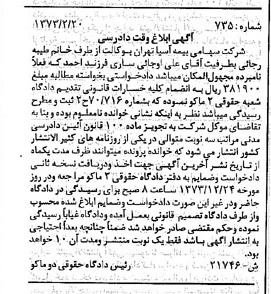 شماره: ۷۳۵ ۱۳۷۳/۲/۲۰
آگهی ابلاغ وقت دادرسی
شرکت سهامی بیمه آسیا تهران بوکالت از طرف خانم طیبه
رجائی بطرفیت آقای علی اوجائی ساری فرزند احمد که فعلاً
نامبرده مجهول‌المکان میباشد دادخواستی بخواسته مطالبه مبلغ
۳۸۱۹۰۰ ریال به انضمام کلیه خسارات قانونی تقدیم دادگاه
شعبه حقوقی ۲ ماکو نموده که بشماره ۷۰/۷۱۶ح۲ ثبت و مطرح
رسیدگی میباشد نظر به اینکه نشانی خوانده نامعلوم بوده و بنا به
تقاضای موکل شرکت به تجویز ماده ۱۰۰ قانون آئین دادرسی
مدنی مراتب سه نوبت متوالی در یکی از روزنامه های کثیر الانتشار
کشور انتشار می شود که خوانده پرونده میتوانند ظرف مدت یکماه
از تاریخ نشر آخرین آگهی جهت اخذ ودریافت نسخه ثانی
دادخواست وضمایم به دفتر دادگاه حقوقی ۲ ماکو مراجعه ودر روز
مورخه ۱۳۷۳/۱۲/۲۴ ساعت ۸ صبح برای رسیدگی در دادگاه
حاضر ودر غیر این صورت دادخواست وضمایم ابلاغ شده محسوب
واز طرف دادگاه تصمیم قانونی بعمل آمده ودادگاه غیاباً رسیدگی
نموده وحکم مقتضی صادر خواهد شد ضمناً چنانچه بعداً احتیاجی
به انتشار آگهی باشد فقط یک نوبت منتشر ومدت آن ۱۰ خواهد
بود.
ش- ۲۱۷۴۶ رئیس دادگاه حقوقی دو ماکو